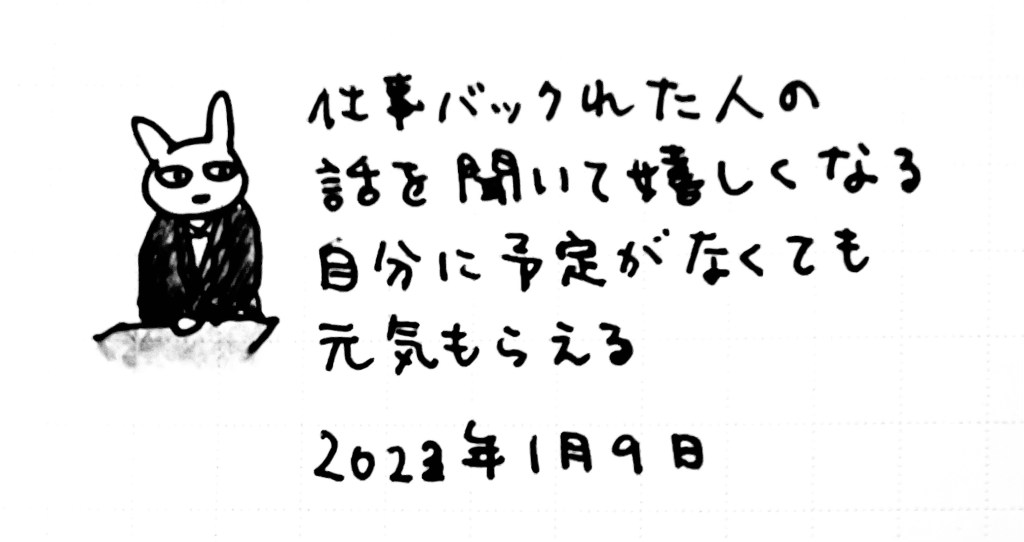 仕事バックれた人の
話を聞いて嬉しくなる
自分に予定がなくても
元気もらえる
2022年1月9日